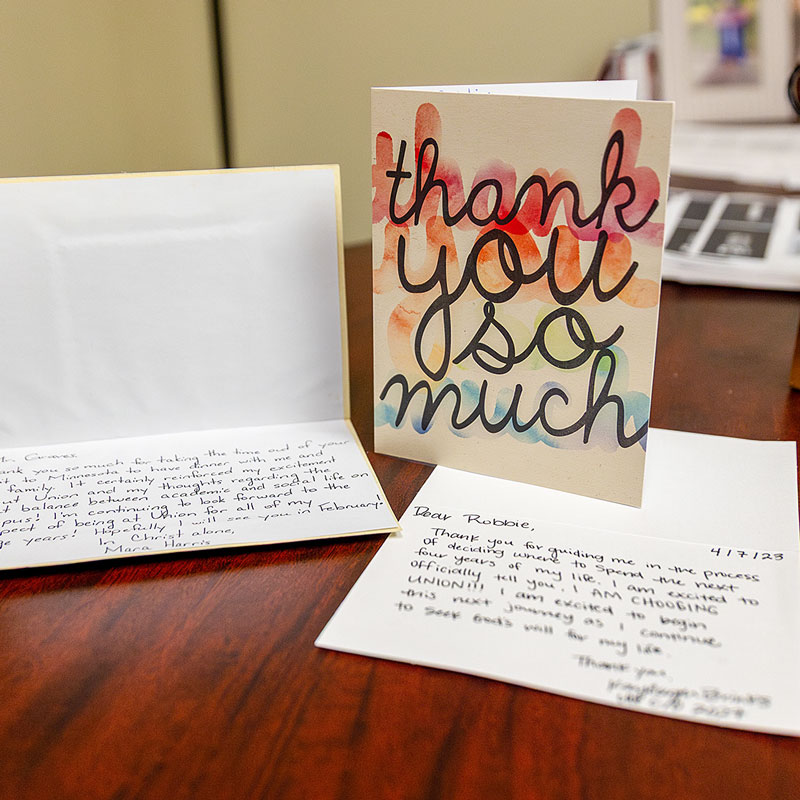 thank
you
so
much
Graves
ank you so much for taking the time out of your
to Minnesota to have dinner with me and
family. It certainly reinforced my excitement
ut Union and my thoughts regarding the
t balance between academic and social life on
pus! I'm continuing to look forward to the
spect of being at Union for all of my
years! Hopefully I will see you in February!
In Christ alone,
Mara Harris
Dear Robbie,
4/7/23
Thank you for guiding me in the process
of deciding where to spend the next
four years of my life. I am excited to
officially tell you, I AM CHOOSING
UNION!!! I am excited to begin
this next journey as I continue
to seek God's will for my life.
Thank you,